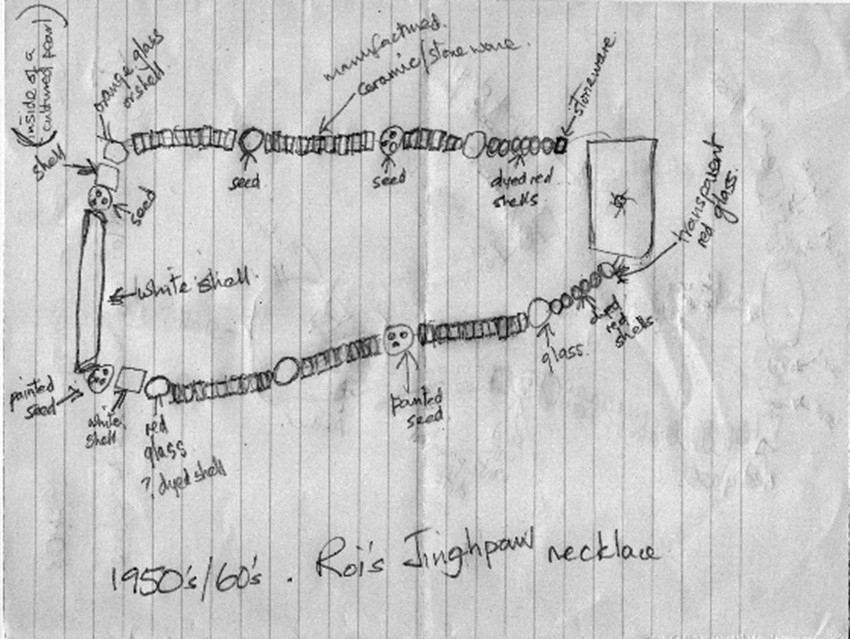 (inside of a
cultured pearl)
orange glass
or shell
manufactured
ceramic/stoneware.
stoneware.
shell
seed
seed
seed
dyed red
shells
transparent
red glass.
white shell.
dyed
red
shells
glass.
painted
seed
white
shell
red
glass
? dyed shell
painted
seed
1950's/60's. Roi's Jinghpaw necklace